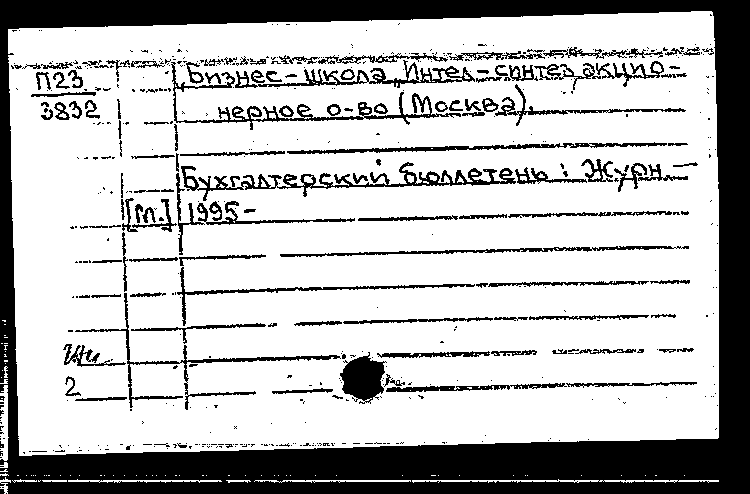 П23
3832
„Бизнес-школа „Интел-синтез, акцио-
нерное о-во (Москва).
Бухгалтерский бюллетень : Журн. —
[М.] 1995-
2